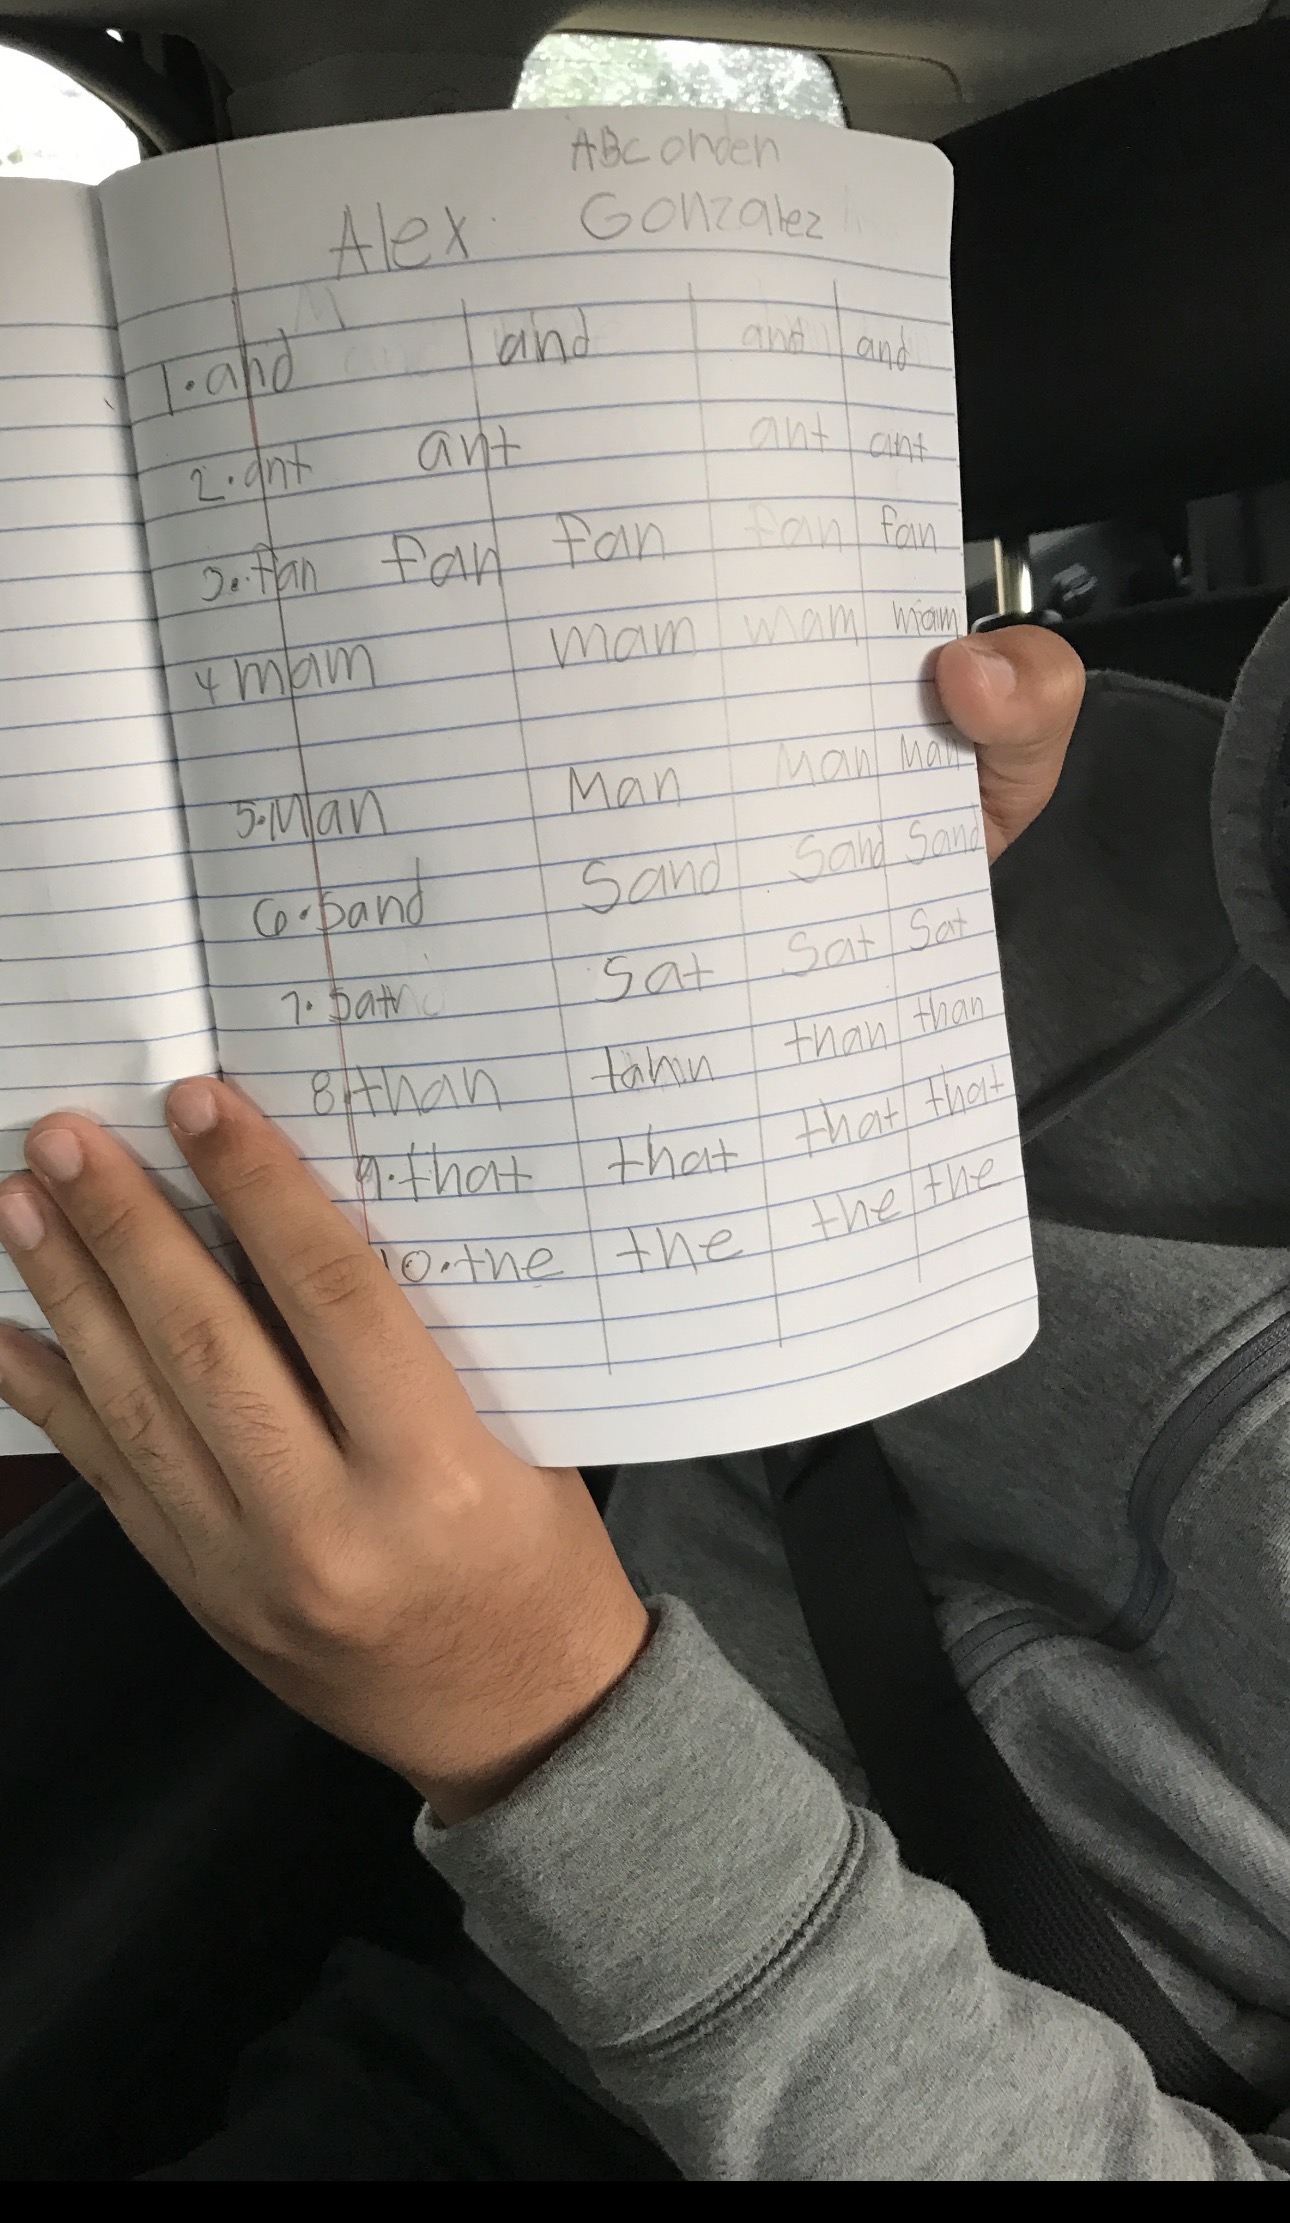 ABC onden
Alex Gonzalez
1. and and and and
2. ant ant ant ant
3. fan fan fan fan fan
4 mam mam mam mam
5. Man Man Man Man
6. Sand Sand Sand Sand
7. Sat Sat Sat
8 than tahn than than
9. that that that that
10. the the the the